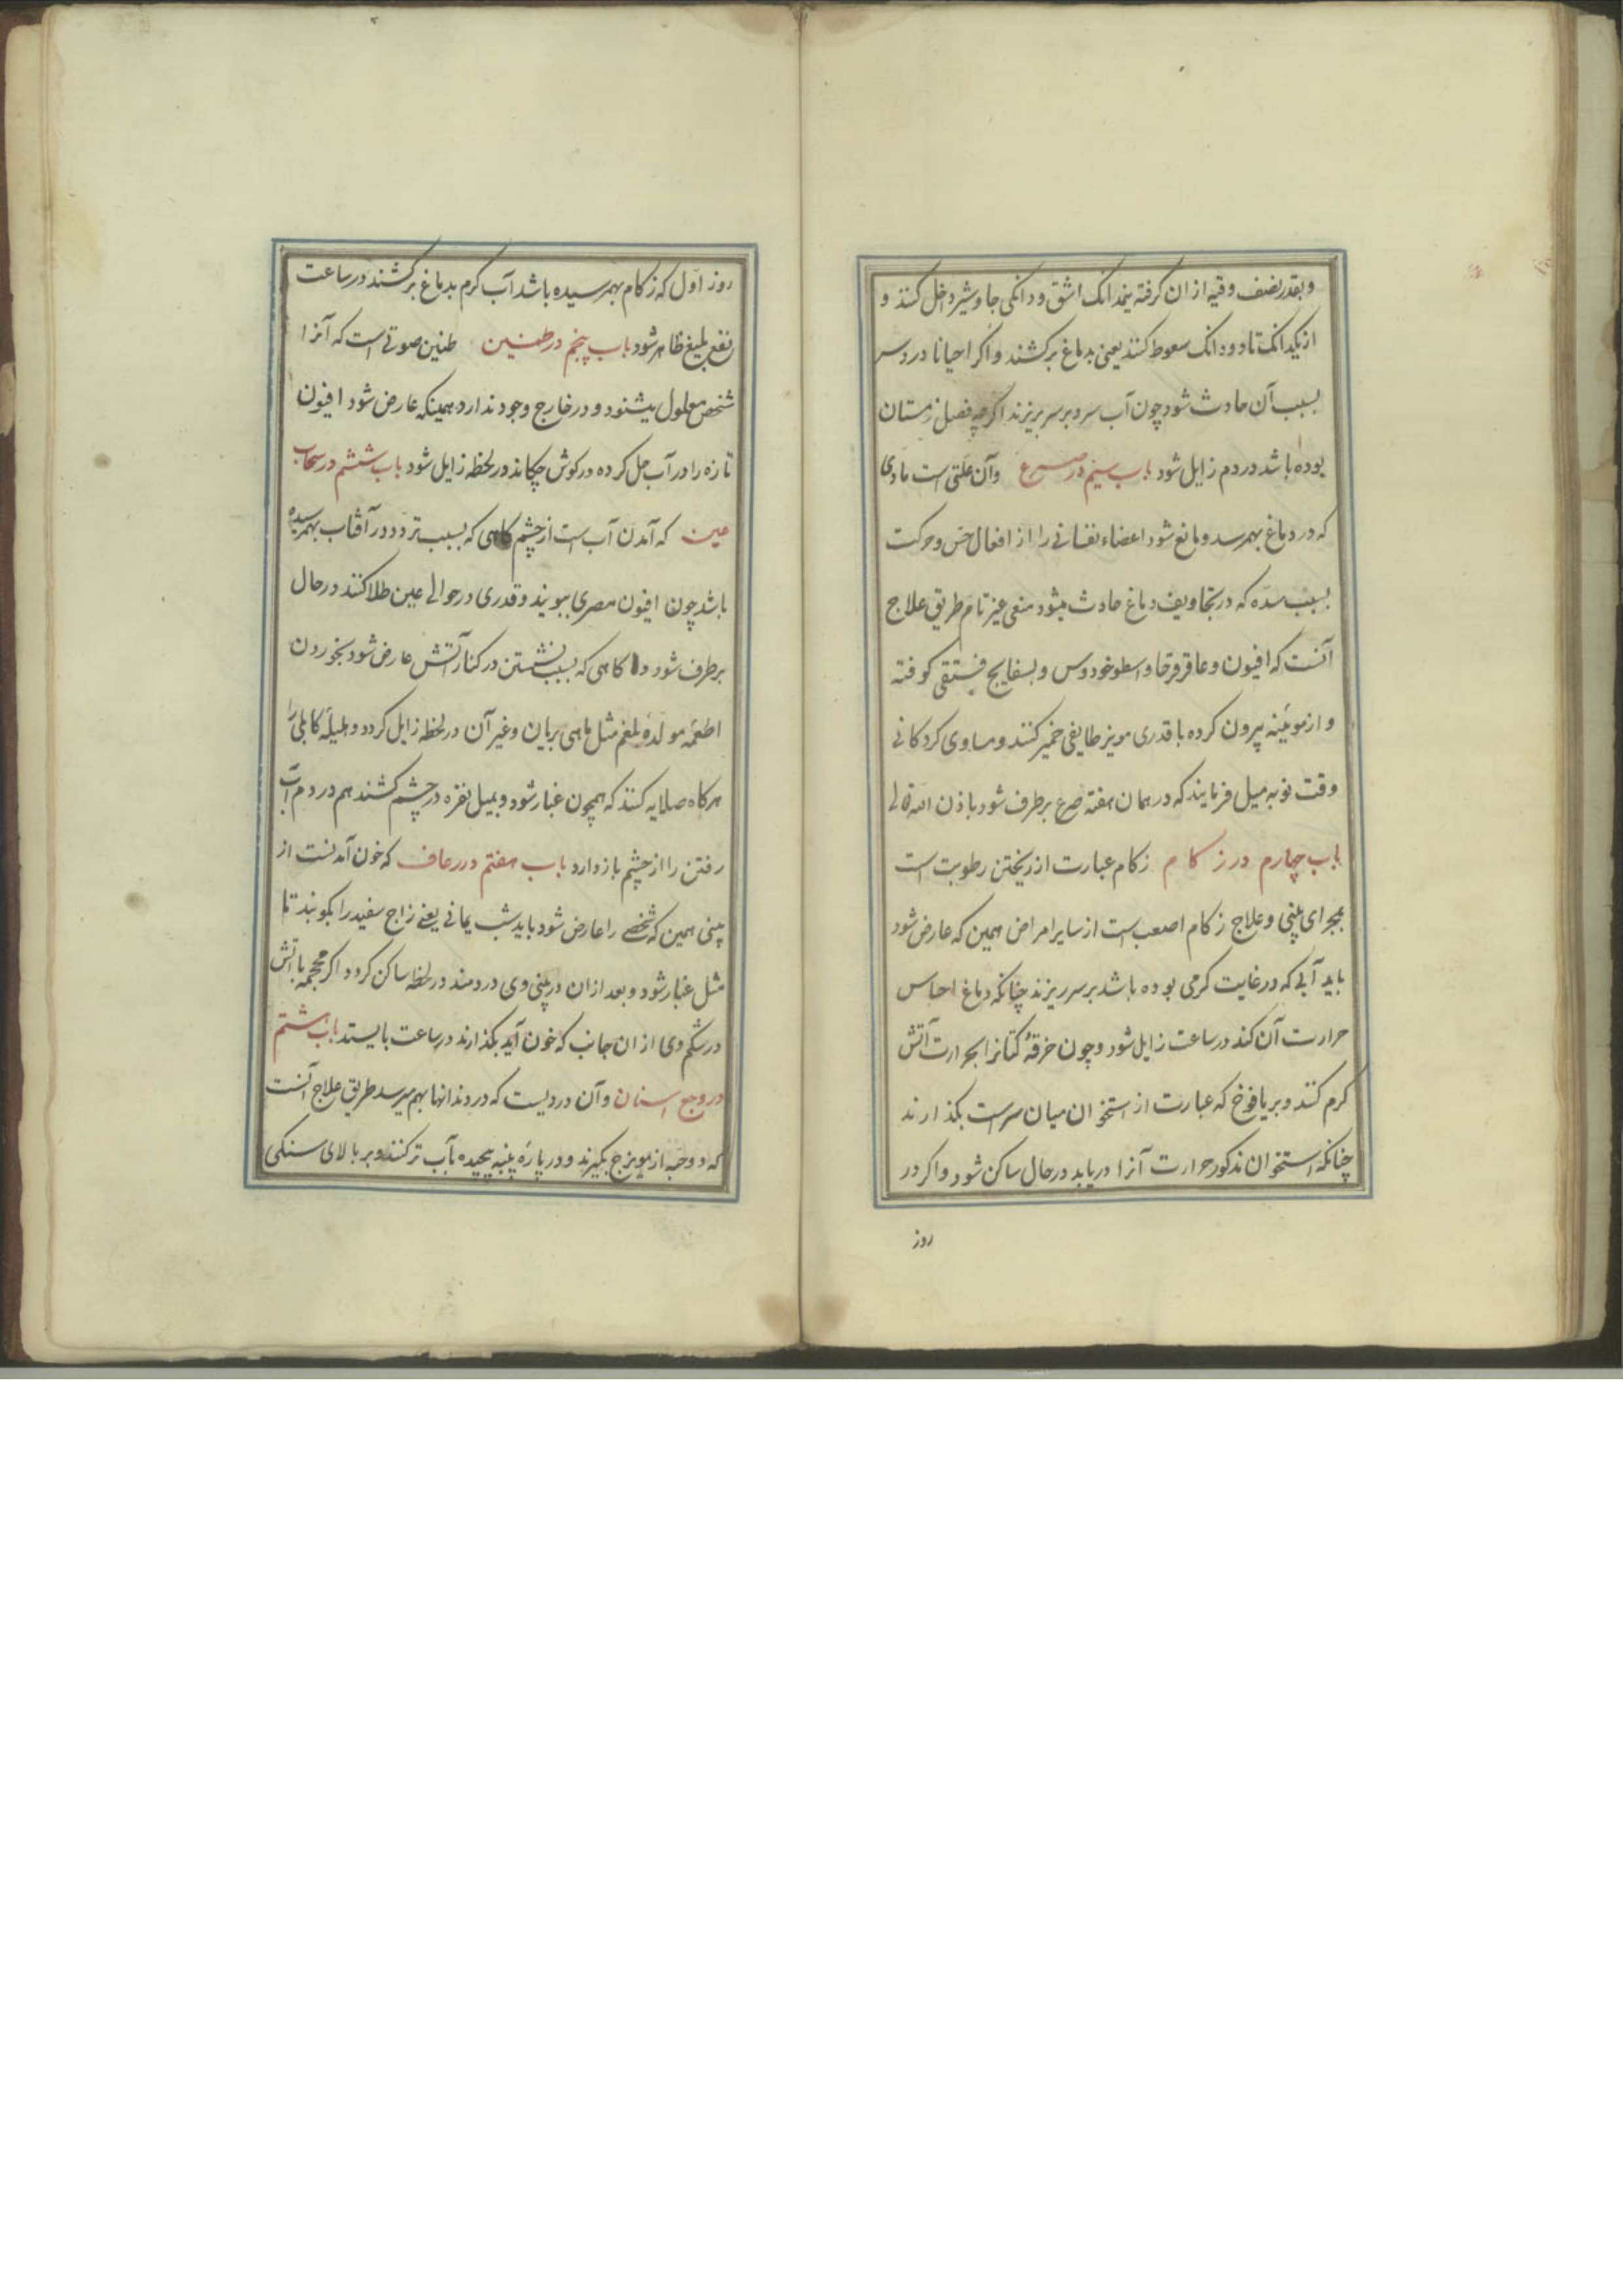 و بقدر نصف وقیه از ان کرفته نیمدانک اشق و دانکی جاوشیر داخل کنند و
از یکدانک تا دو دانک سعوط کنند یعنی بدماغ برکشند و اکر احیانا دردسر
بسبب آن حادث شود چون آب سرد بر سر بریزند اکرچه فصل زمستان
بوده باشد در دم زایل شود باب سیم در صرع وآن علتی است مادی
که در دماغ بهمرسد و مانع شود اعضاء نفسانی را از افعال حس و حرکت
بسبب سده که در تجاویف دماغ حادث میشود منعی غیر تام طریق علاج
آنست که افیون و عاقرقرحا و اسطوخودوس و بسفایج فستقی کوفته
و از موئینه پیرون کرده با قدری مویز طایفی خمیر کنند و مساوی کردکانی
وقت نوبه میل فرمایند که در همان هفته صرع برطرف شود باذن الله تعالی
باب چهارم در زکام زکام عبارت از ریختن رطوبت است
بمجرای پنی و علاج زکام اصعب است از سایر امراض همین که عارض شود
باید آبی که در غایت کرمی بوده باشد بر سر ریزند چنانکه دماغ احساس
حرارت آن کند در ساعت زایل شود و چون خرقهٔ کتانرا بحرارت آتش
کرم کنند و بر یافوخ که عبارت از استخوان میان سر است بکذارند
چنانکه استخوان مذکور حرارت آنرا دریابد در حال ساکن شود و اکر در
روز
روز اول که زکام بهمرسیده باشد آب کرم بدماغ برکشند در ساعت
نفع بلیغ ظاهر شود باب پنجم در طنین طنین صوتی است که آنرا
شخص معلول میشنود و در خارج وجود ندارد همینکه عارض شود افیون
تازه را در آب حل کرده در کوش چکانند در لحظه زایل شود باب ششم در سحاب
عین که آمدن آب است از چشم کاهی که بسبب تردد در آفتاب بهمرسیده
باشد چون افیون مصری ببویند و قدری در حوالی عین طلا کنند در حال
برطرف شود و کاهی که بسبب نشستن در کنار آتش عارض شود بخوردن
اطعمه مولدهٔ بلغم مثل ماهی بریان و غیر آن در لحظه زایل کردد و هلیلهٔ کابلی را
هرکاه صلایه کنند که همچون غبار شود و بمیل نقره در چشم کشند هم در دم آب
رفتن را از چشم باز دارد باب هفتم در رعاف که خون آمدنست از
پنی همین که شخصی را عارض شود باید شب یمانی یعنی زاج سفید را بکوبند تا
مثل غبار شود و بعد از ان در پنی وی دردمند در لحظه ساکن کردد اکر محجمه باتش
در شکم وی از ان جانب که خون آید بکذارند در ساعت بایستد باب هشتم
در وجع اسنان وآن دردیست که در دندانها بهم میرسد طریق علاج آنست
که دو حبه از مویزج بکیرند و در پارهٔ پنبه پیچیده بآب تر کنند و بر بالای سنکی